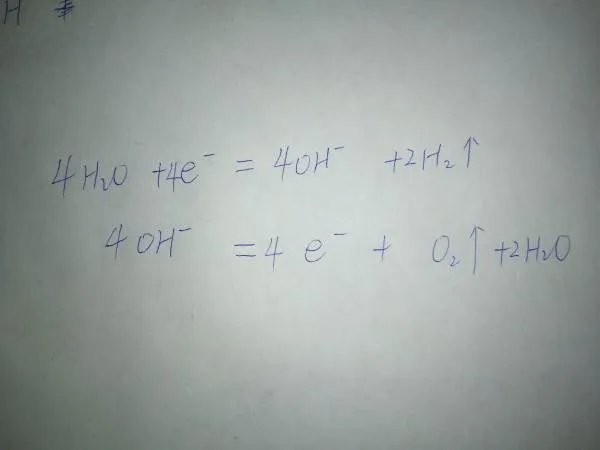 H
4H₂O +4e⁻ = 4OH⁻ +2H₂↑
4OH⁻ =4 e⁻ + O₂↑+2H₂O